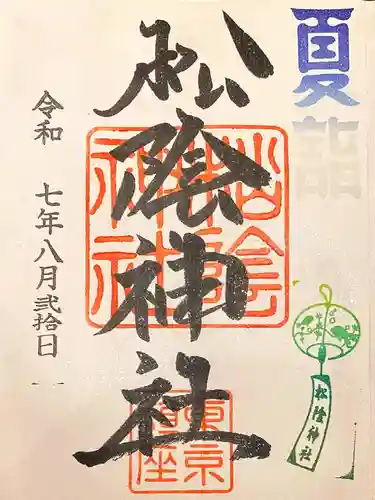 夏詣
松陰神社
松陰神社
東京
鎮座
松陰神社
令和 七年八月弐拾日